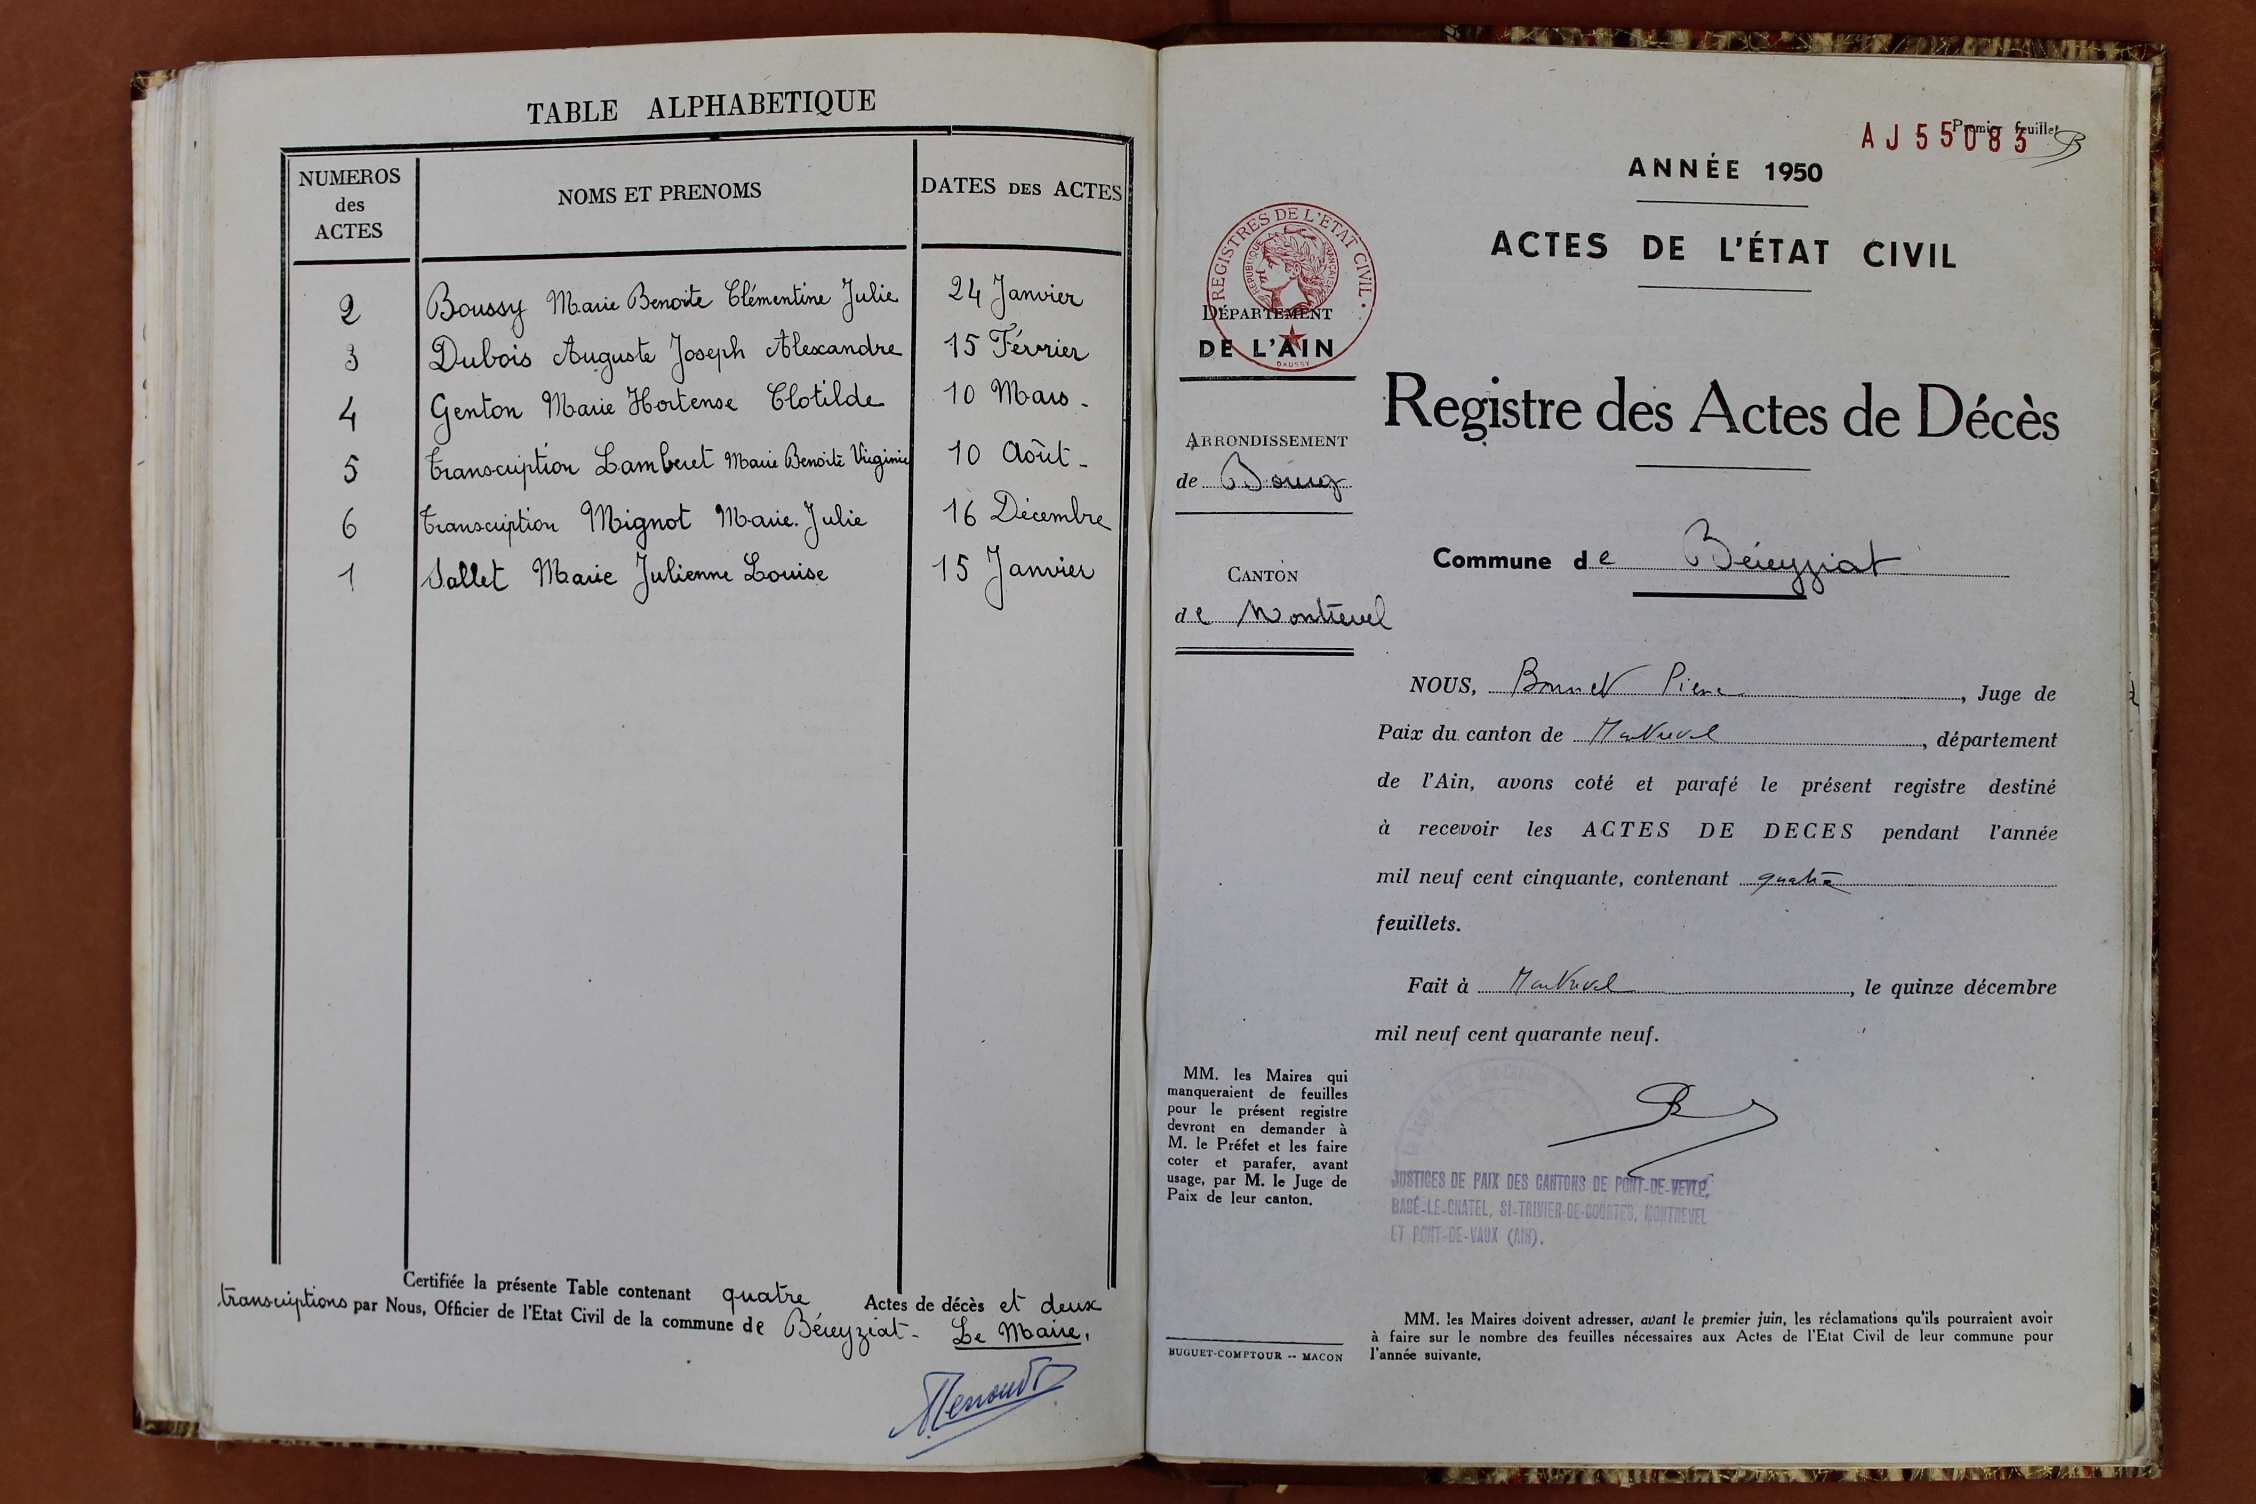 TABLE ALPHABETIQUE
NUMEROS des ACTES
NOMS ET PRENOMS
DATES DES ACTES
2 Boussy Marie Benoite Clémentine Julie 24 Janvier
3 Dubois Auguste Joseph Alexandre 15 Février
4 Genton Marie Hortense Clotilde 10 Mars -
5 transcription Lamberet Marie Benoite Virginie 10 Août -
6 transcription Mignot Marie. Julie 16 Décembre
1 Sallet Marie Julienne Louise 15 Janvier
Certifiée la présente Table contenant quatre Actes de décès et deux
transcriptions par Nous, Officier de l'Etat Civil de la commune de Béreyziat - Le Maire,
Premier feuillet
AJ55083
ANNÉE 1950
ACTES DE L'ÉTAT CIVIL
REGISTRES DE L'ETAT CIVIL
REPUBLIQUE FRANÇAISE
DAUSSY
DÉPARTEMENT
DE L'AIN
Registre des Actes de Décès
ARRONDISSEMENT
de Bourg
Commune de Béreyziat
CANTON
de Montrevel
NOUS, Bonnet Pierre, Juge de
Paix du canton de Montrevel, département
de l'Ain, avons coté et parafé le présent registre destiné
à recevoir les ACTES DE DECES pendant l'année
mil neuf cent cinquante, contenant quatre
feuillets.
Fait à Montrevel, le quinze décembre
mil neuf cent quarante neuf.
MM. les Maires qui
manqueraient de feuilles
pour le présent registre
devront en demander à
M. le Préfet et les faire
coter et parafer, avant
usage, par M. le Juge de
Paix de leur canton.
JUSTICES DE PAIX DES CANTONS DE PONT-DE-VEYLE,
BAGÉ-LE-CHATEL, St-TRIVIER-DE-COURTES, MONTREVEL
ET PONT-DE-VAUX (AIN).
BUGUET-COMPTOUR -- MACON
MM. les Maires doivent adresser, avant le premier juin, les réclamations qu'ils pourraient avoir
à faire sur le nombre des feuilles nécessaires aux Actes de l'Etat Civil de leur commune pour
l'année suivante.